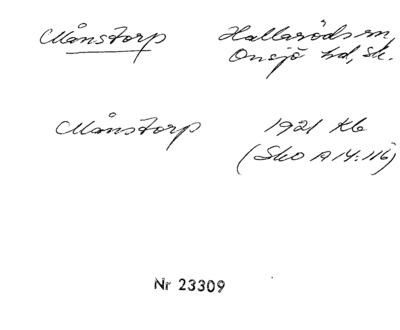 Månstorp Hallaröds sn,
Onsjö hd, Sk.
Månstorp 1921 Kb
(Sko A 14:116)
Nr 23309